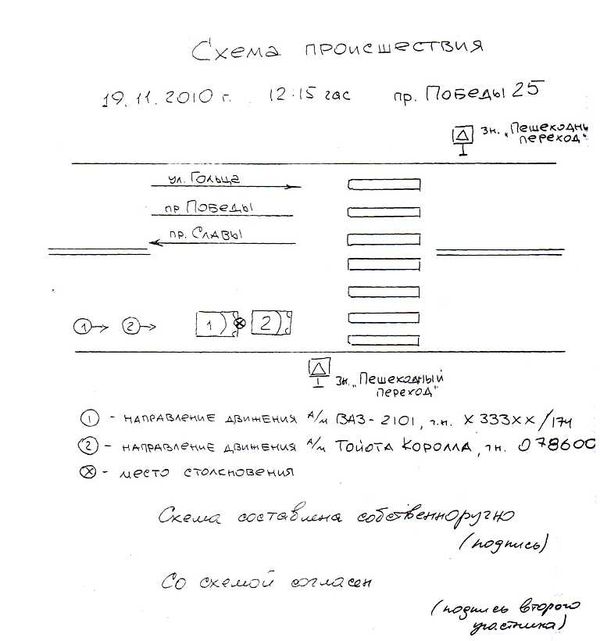 Схема происшествия
19.11.2010 г. 12.15 час пр. Победы 25
зн. „Пешеходн
переход"
ул. Гольца
пр Победы
пр. Славы
1 2 1) 2)
зн. „Пешеходный
переход"
1 - направление движения а/м ВАЗ-2101, г.н. х333хх/174
2 - направление движения а/м Тойота Королла, гн. 078600
⊗ - место столкновения
Схема составлена собственноручно
(подпись)
Со схемой согласен
(подпись второго
участника)